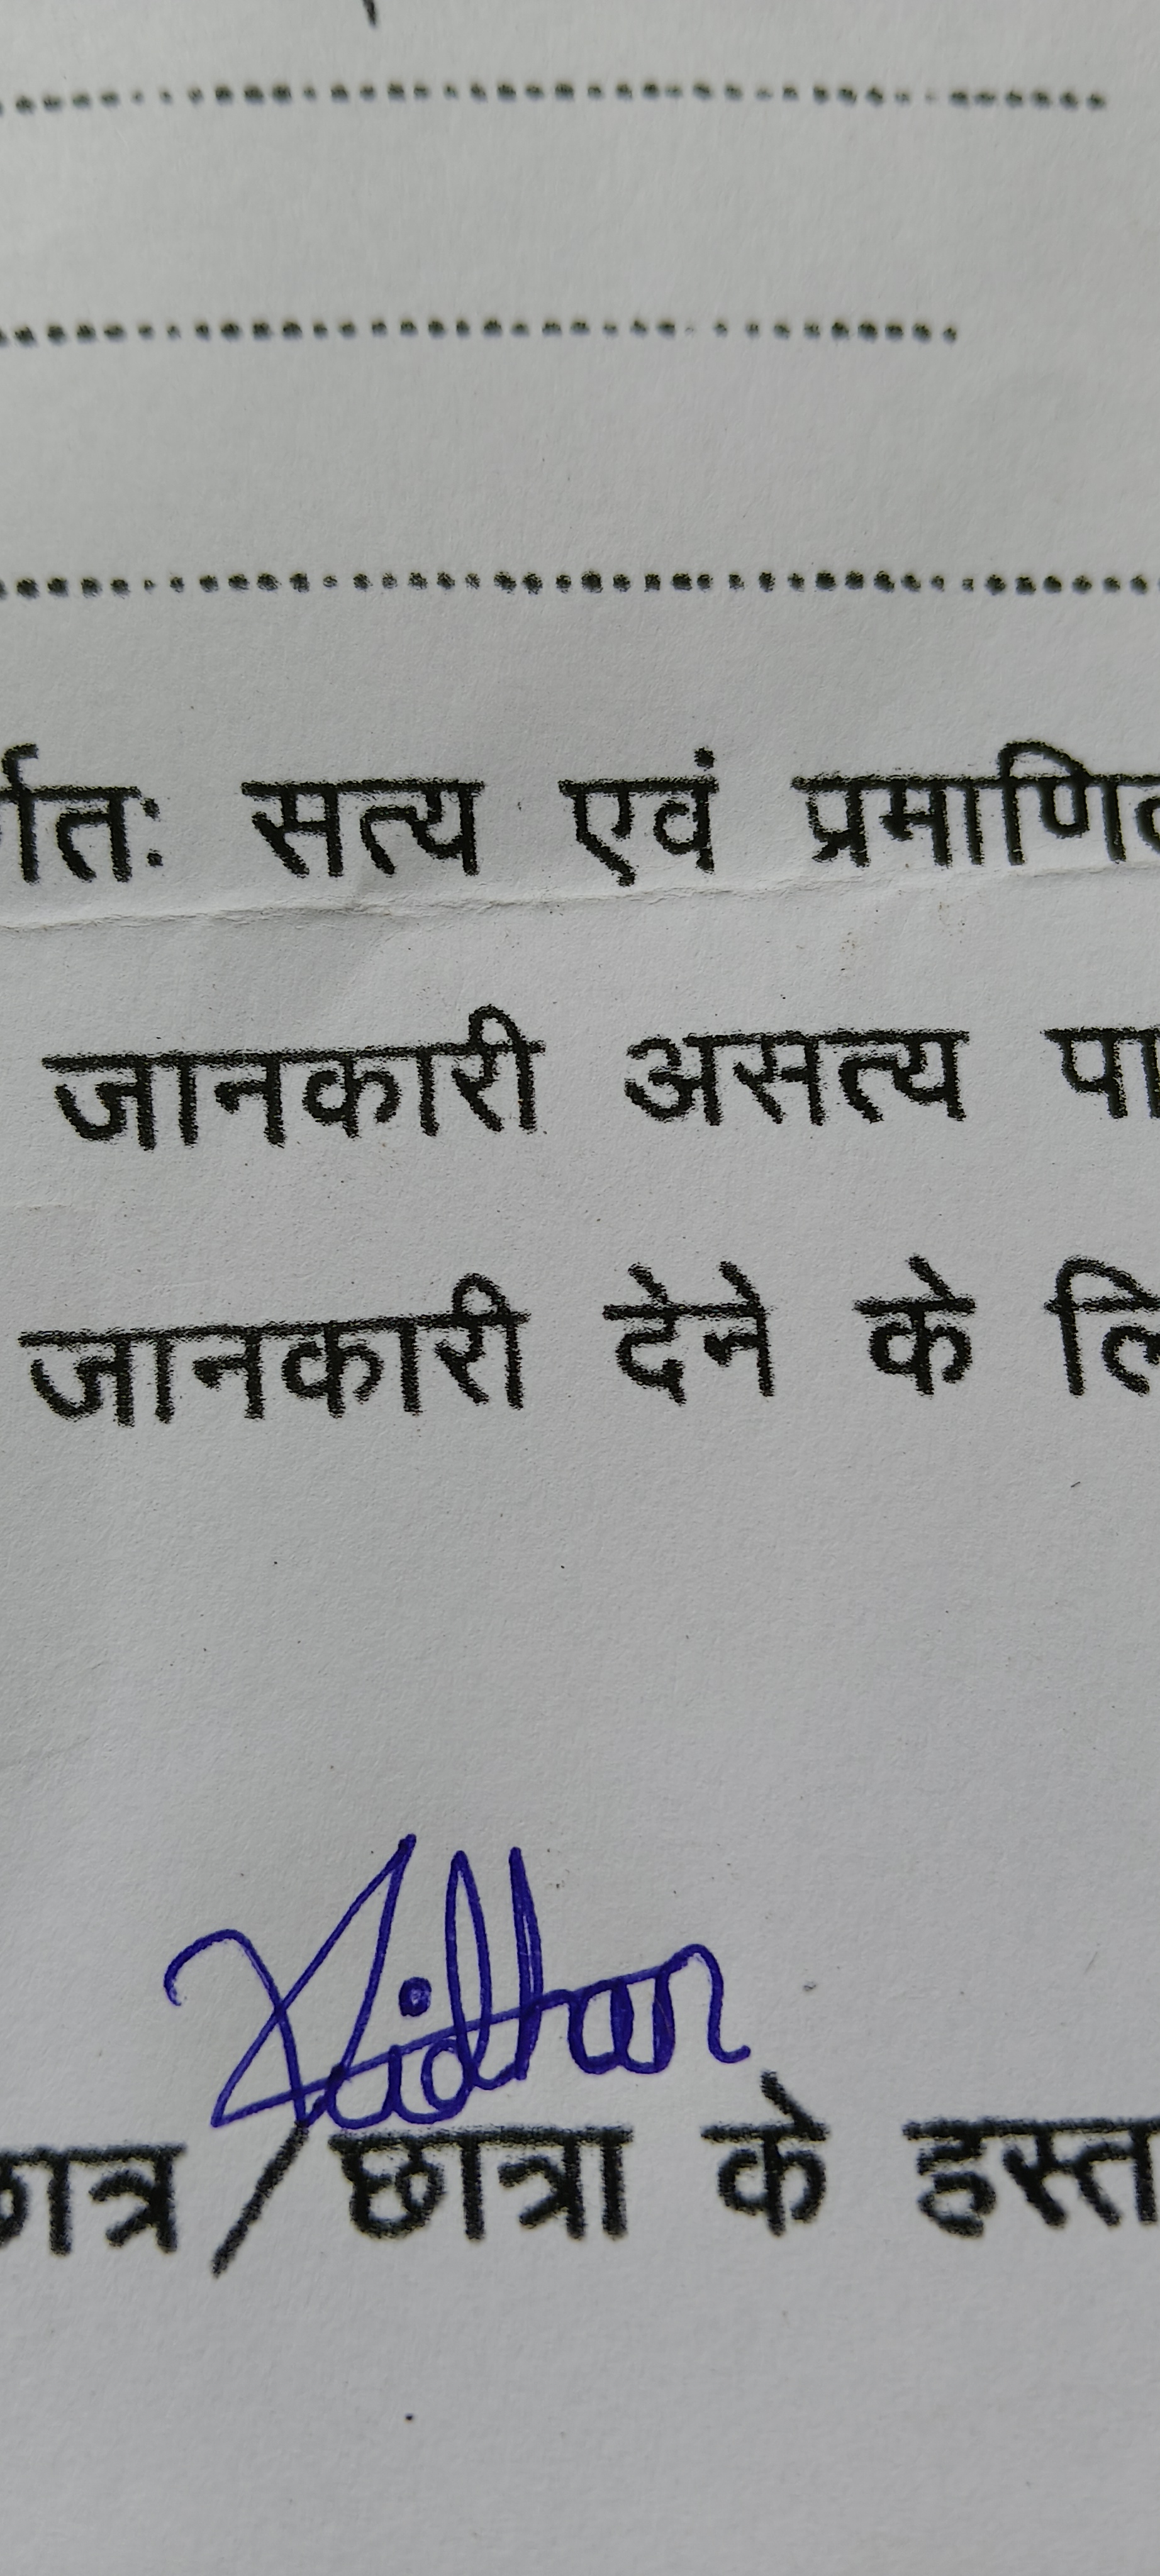 र्णतः सत्य एवं प्रमाणित
जानकारी असत्य पा
जानकारी देने के लि
Nidhan
छात्र / छात्रा के हस्त